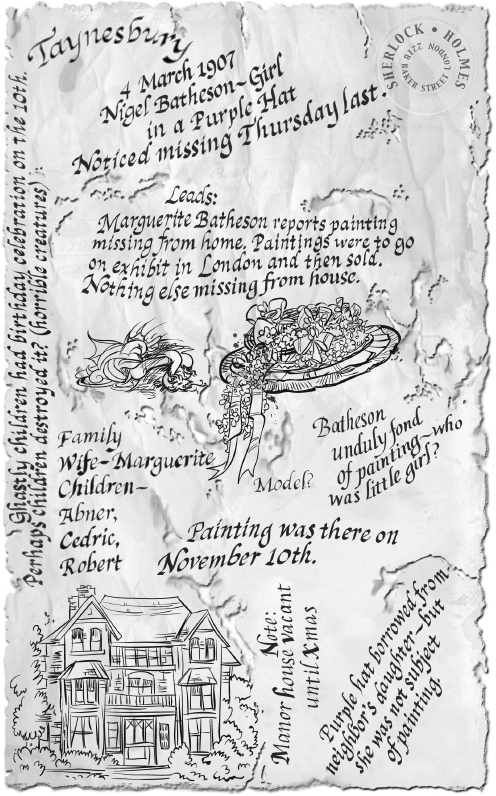 Taynesbury
SHERLOCK • HOLMES
221B BAKER STREET LONDON
4 March 1907
Nigel Batheson~Girl
in a Purple Hat
Noticed missing Thursday last.
Leads:
Marguerite Batheson reports painting
missing from home. Paintings were to go
on exhibit in London and then sold.
Nothing else missing from house.
Ghastly children had birthday celebration on the 10th.
Perhaps children destroyed it? (horrible creatures)
Family
Wife~Marguerite
Children~
Abner,
Cedric,
Robert
Model?
Batheson
unduly fond
of painting~who
was little girl?
Painting was there on
November 10th.
Note:
Manor house vacant
until Xmas
Purple hat borrowed from
neighbor's daughter~but
she was not subject
of painting